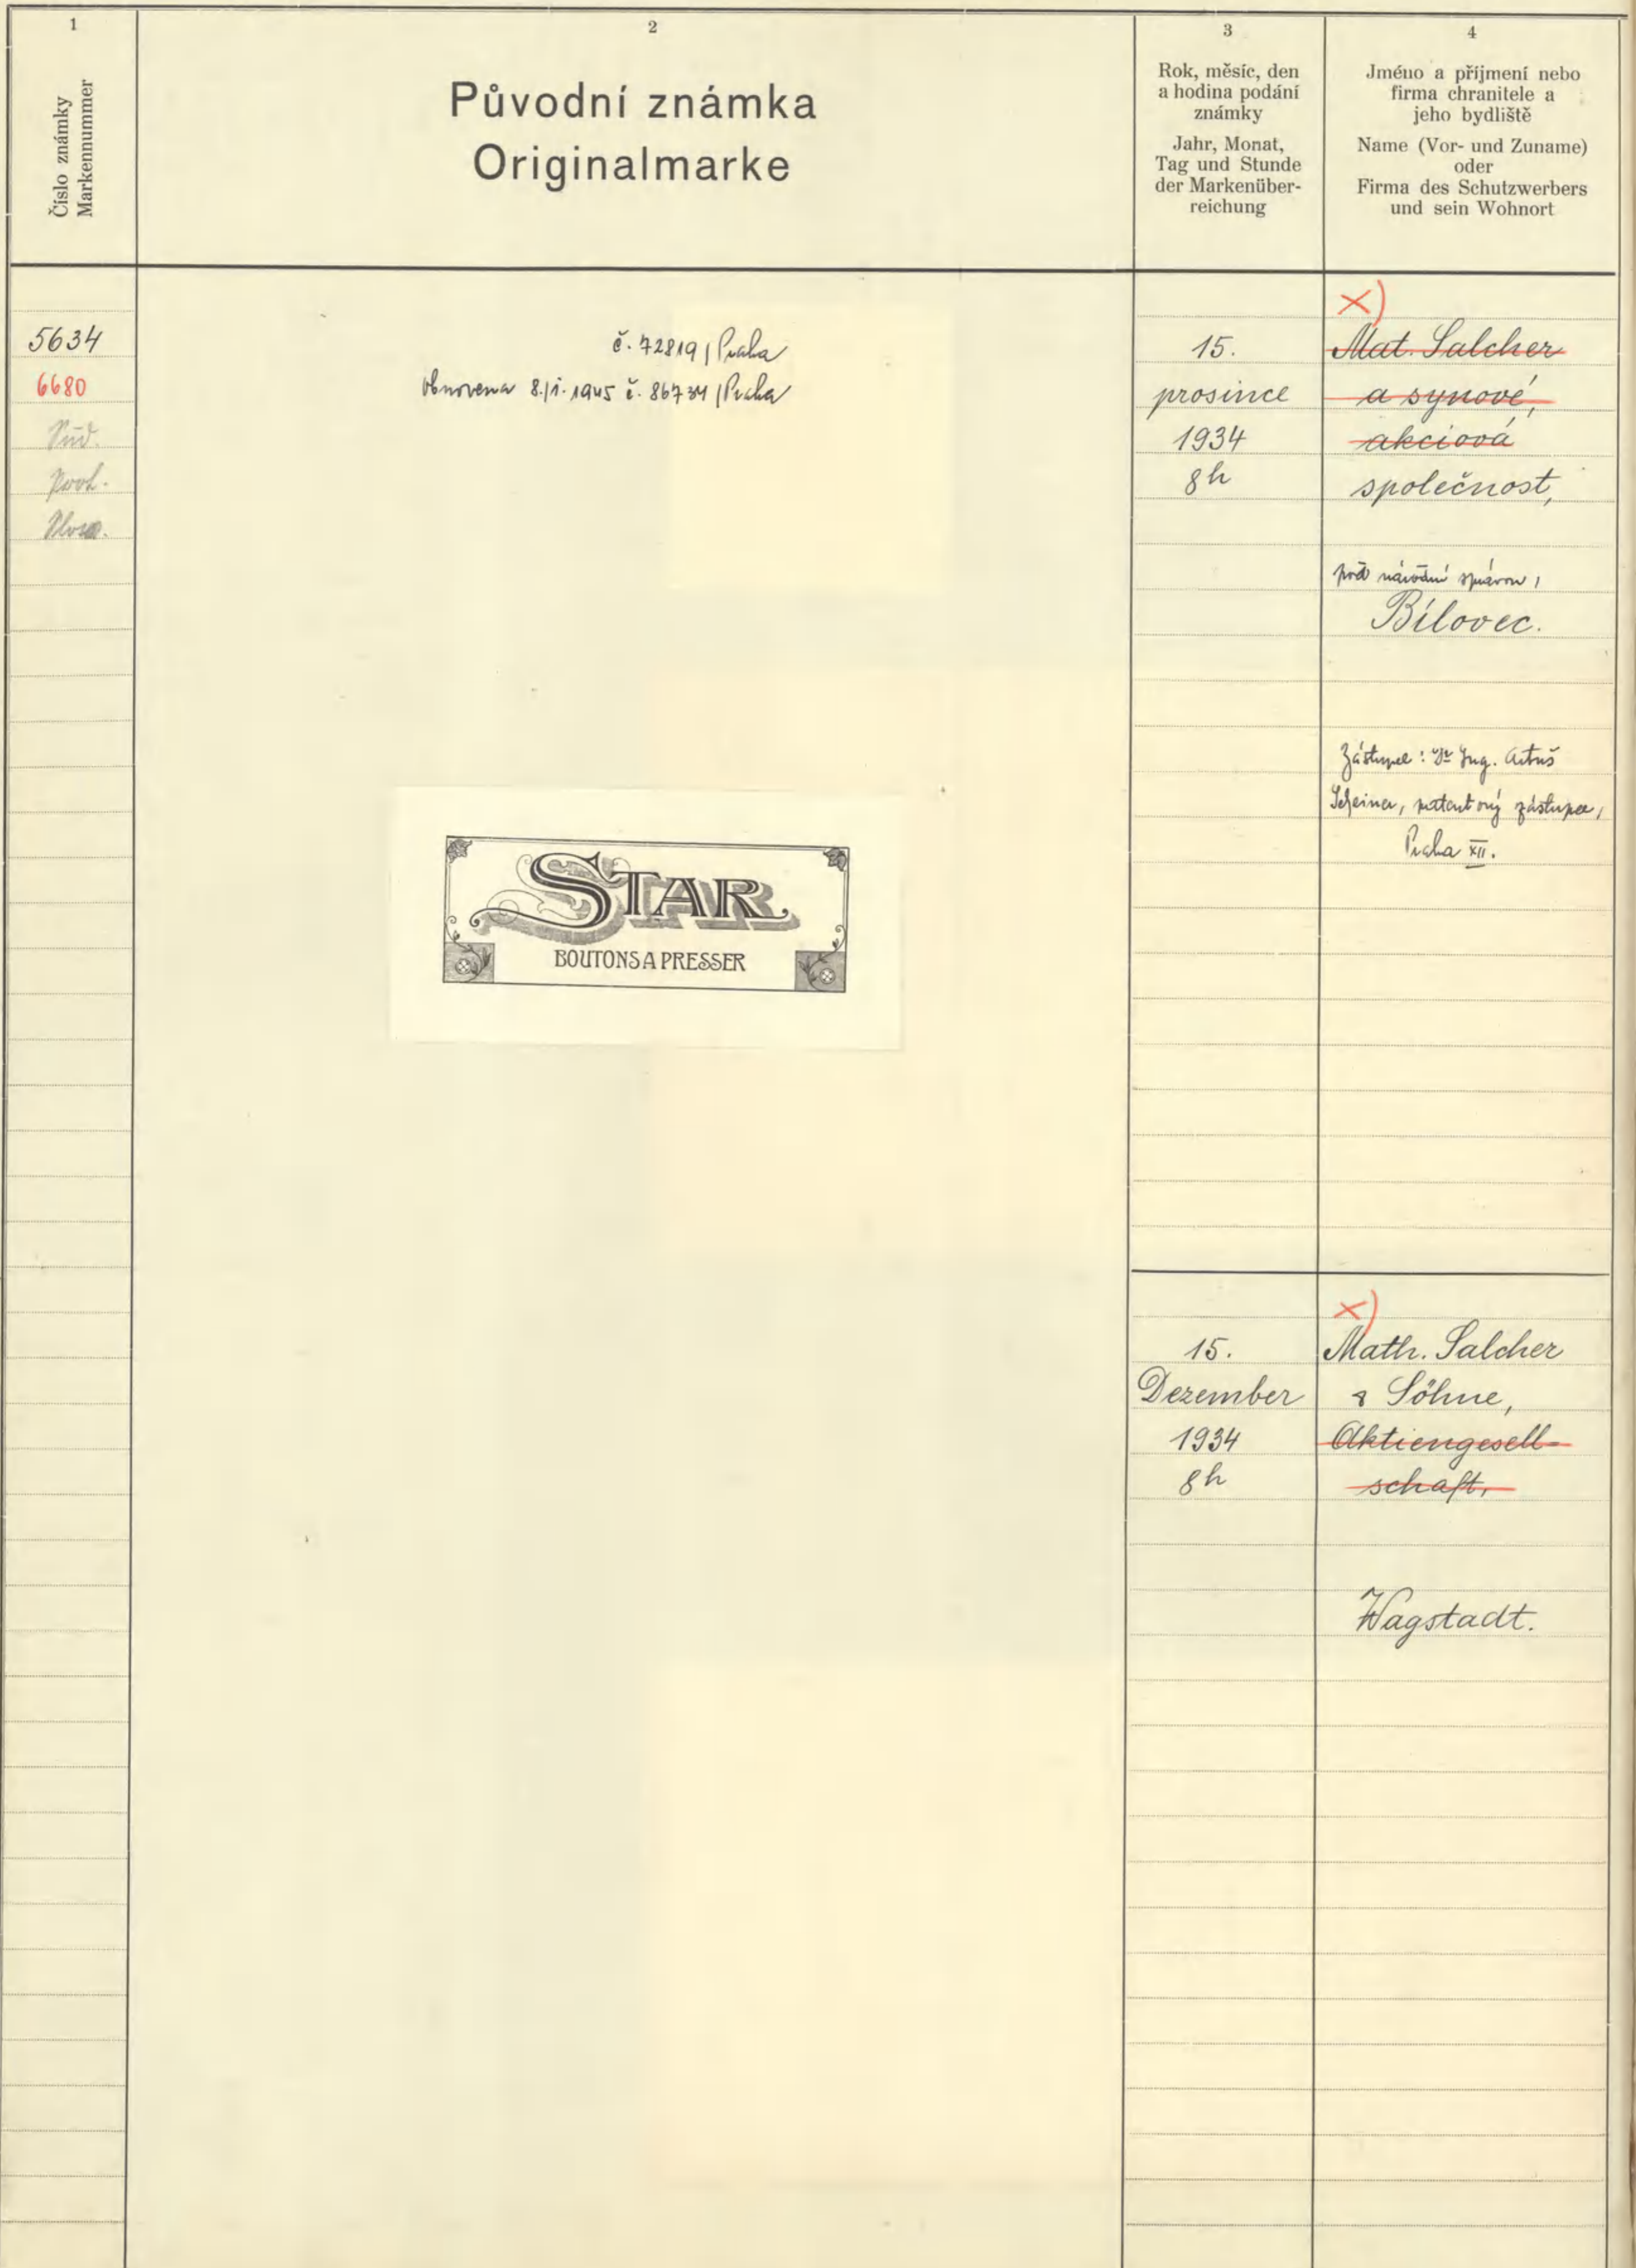 1
Číslo známky
Markennummer
2
Původní známka
Originalmarke
3
Rok, měsíc, den
a hodina podání
známky
Jahr, Monat,
Tag und Stunde
der Markenüber-
reichung
4
Jméno a příjmení nebo
firma chranitele a
jeho bydliště
Name (Vor- und Zuname)
oder
Firma des Schutzwerbers
und sein Wohnort
5634
6680
Sud.
Slov.
č. 72819 / Praha
Obnovena 8./1. 1945 č. 86734 / Praha
STAR
BOUTONS A PRESSER
15.
prosince
1934
8h
x)
Mat. Salcher
a synové,
akciová
společnost,
pod národní správou,
Bílovec.
Zástupce: Dr Ing. Artuš
Scheiner, patentový zástupce,
Praha XII.
15.
Dezember
1934
8h
x)
Math. Salcher
& Söhne,
Aktiengesell-
schaft,
Wagstadt.